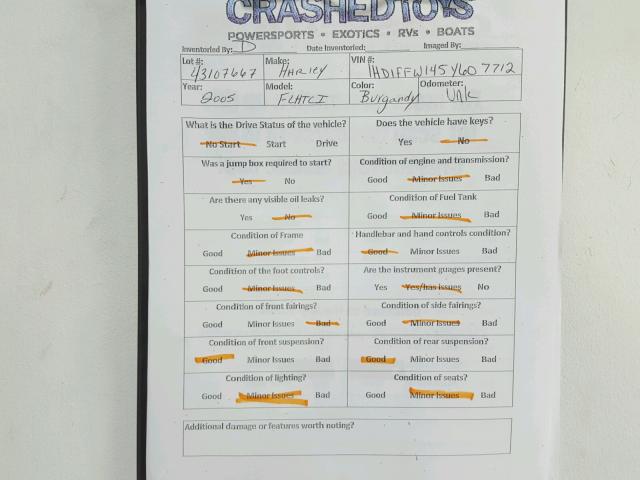 CRASHEDTOYS
POWERSPORTS • EXOTICS • RVs • BOATS
Inventoried By: D Date Inventoried: Imaged By:
Lot #: Make: VIN #:
43107667 HARley 1HD1FFW145Y607712
Year: Model: Color: Odometer:
2005 FLHTCI Burgandy Unk
What is the Drive Status of the vehicle? Does the vehicle have keys?
No Start Start Drive Yes No
Was a jump box required to start? Condition of engine and transmission?
Yes No Good Minor Issues Bad
Are there any visible oil leaks? Condition of Fuel Tank
Yes No Good Minor Issues Bad
Condition of Frame Handlebar and hand controls condition?
Good Minor Issues Bad Good Minor Issues Bad
Condition of the foot controls? Are the instrument guages present?
Good Minor Issues Bad Yes Yes/has issues No
Condition of front fairings? Condition of side fairings?
Good Minor Issues Bad Good Minor Issues Bad
Condition of front suspension? Condition of rear suspension?
Good Minor Issues Bad Good Minor Issues Bad
Condition of lighting? Condition of seats?
Good Minor Issues Bad Good Minor Issues Bad
Additional damage or features worth noting?